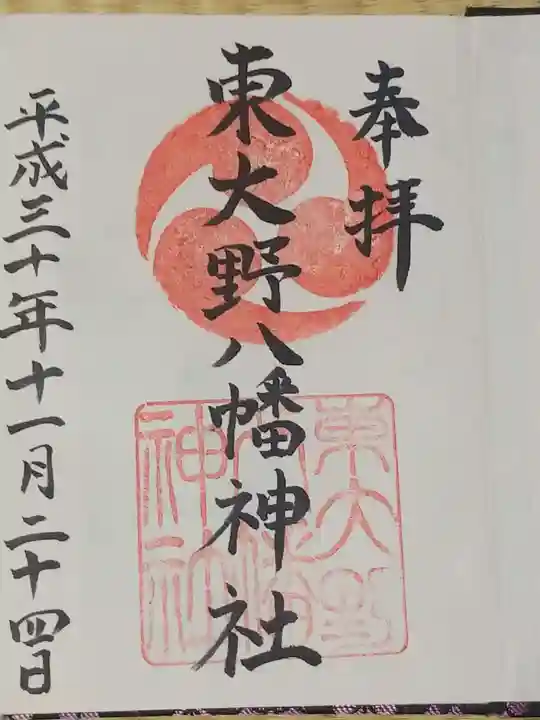 奉拝
東大野八幡神社
東大野
八幡
神社
平成三十年十一月二十四日